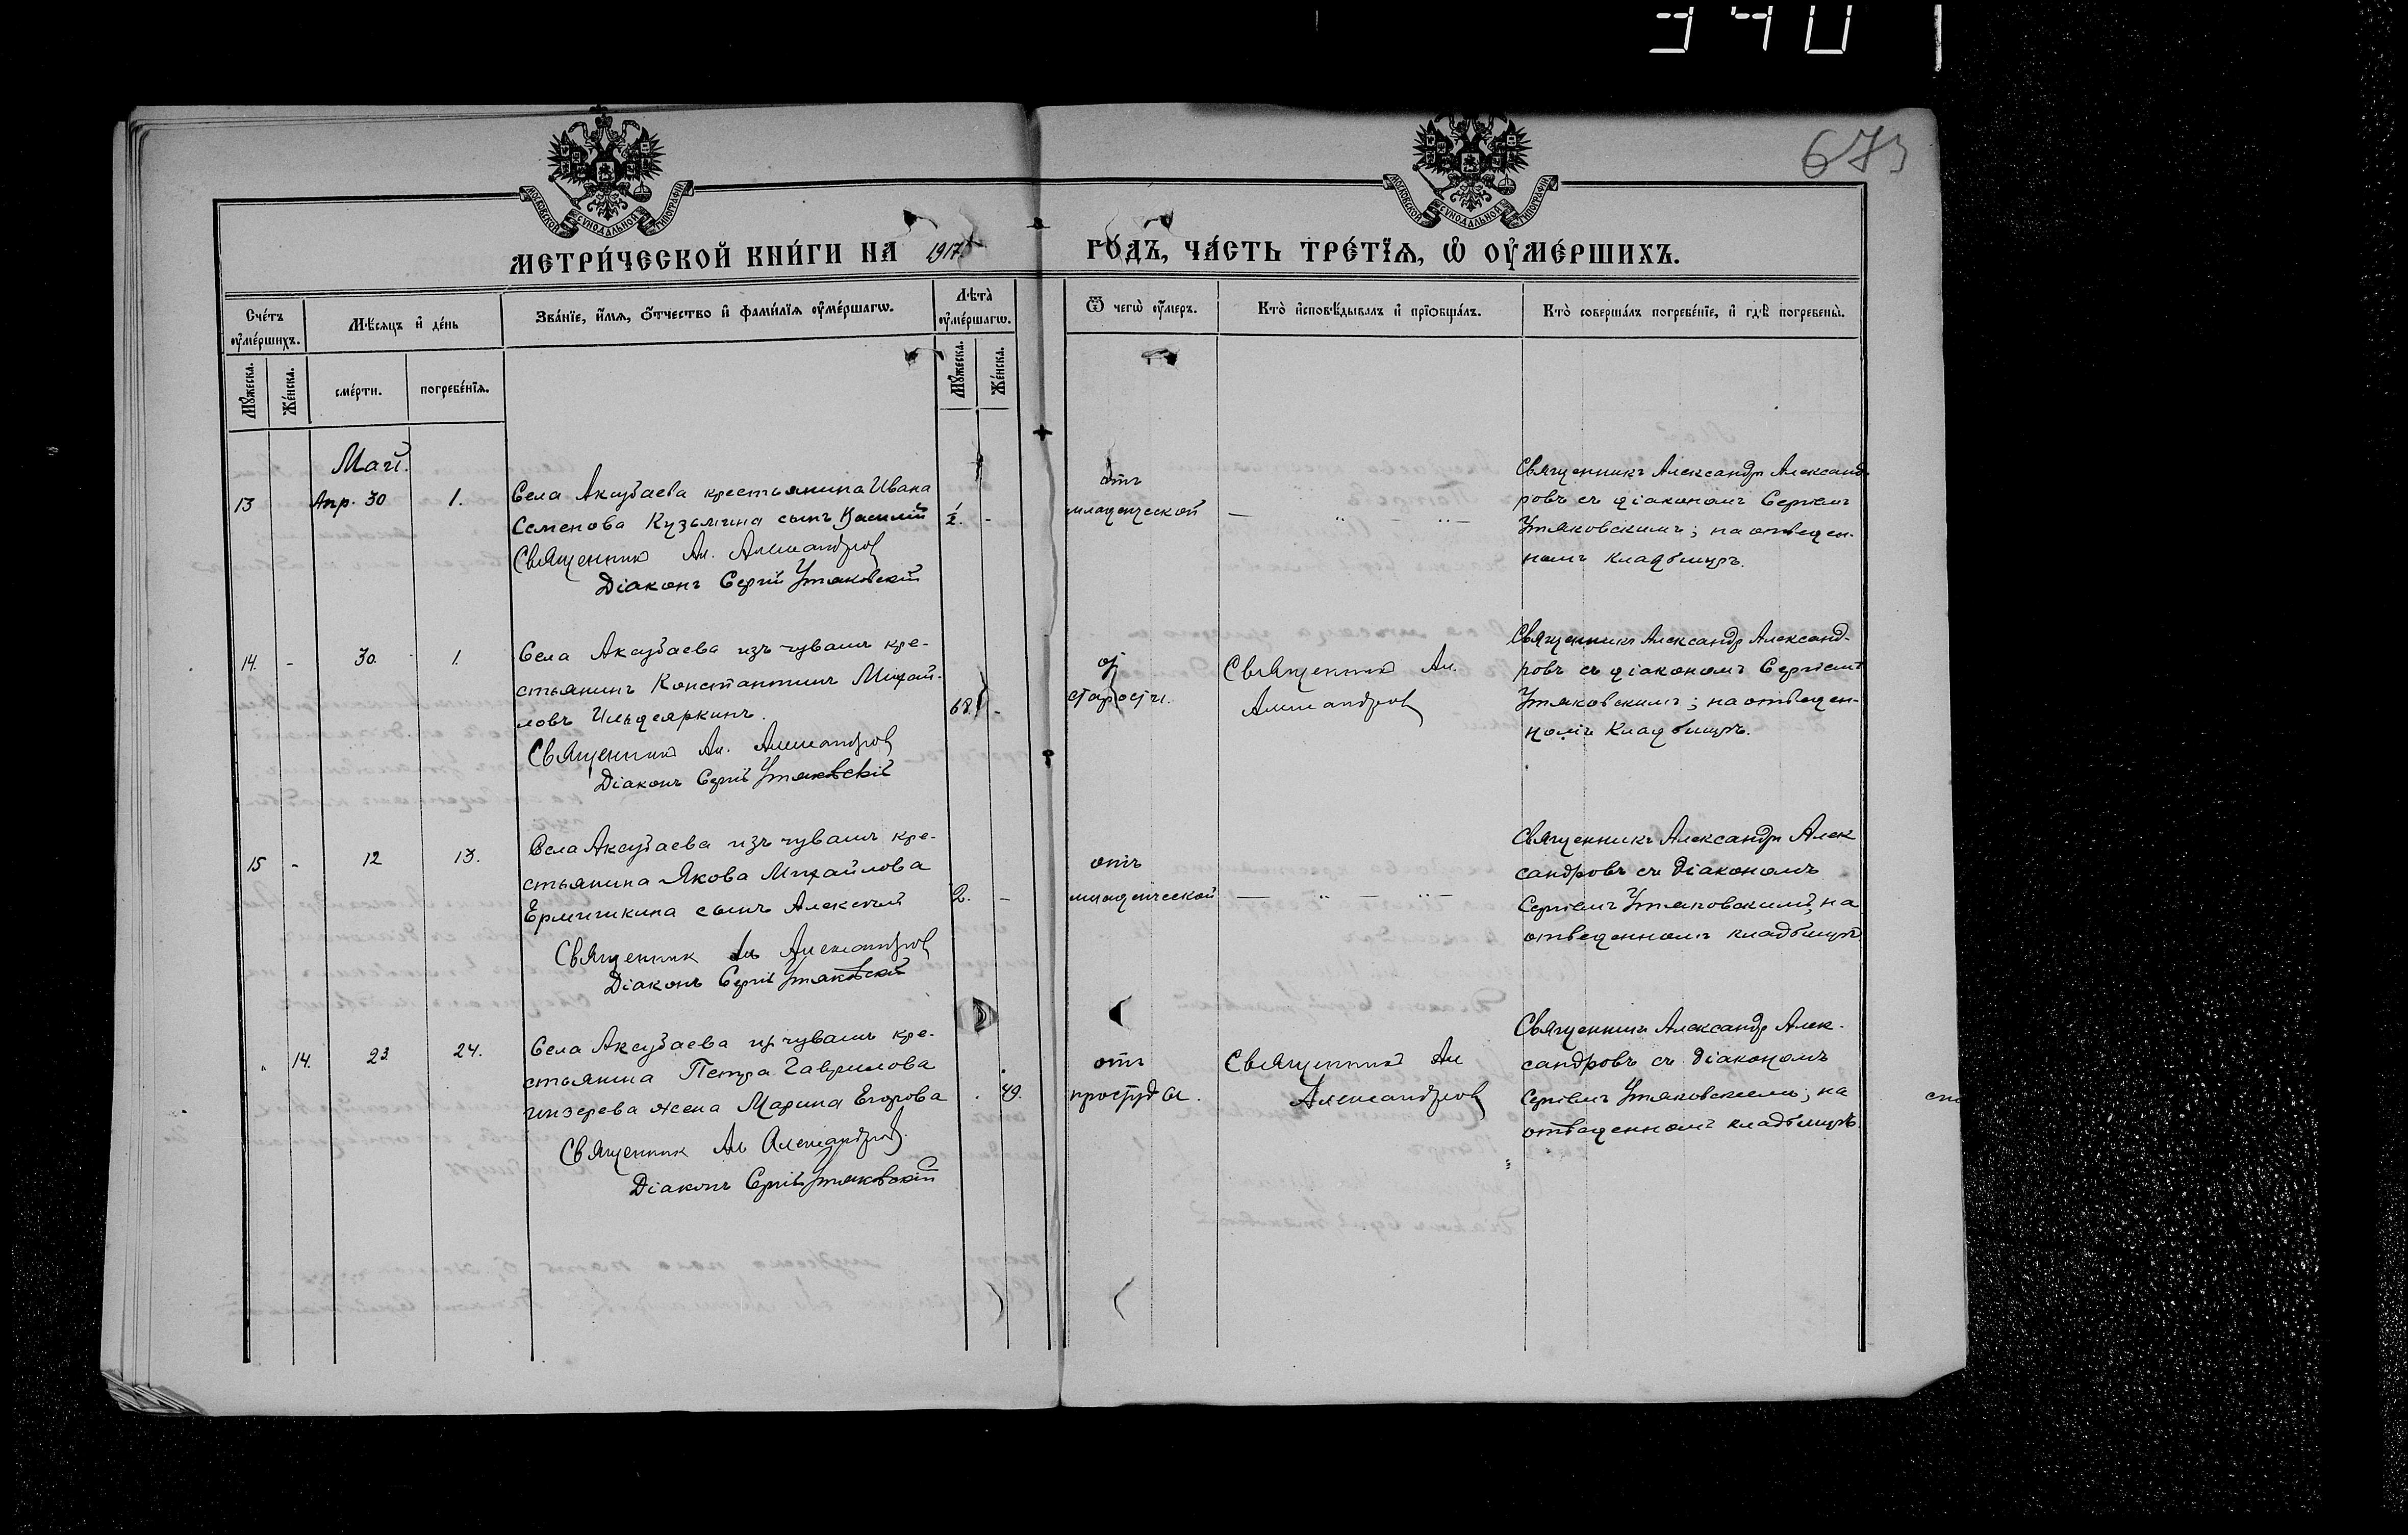 340
673
МОСКОВСКОЙ СѴНОДАЛЬНОЙ ТИПОГРАФІИ
МОСКОВСКОЙ СѴНОДАЛЬНОЙ ТИПОГРАФІИ
МЕТРИ́ЧЕСКОЙ КНИ́ГИ НА 1917 ГО́ДЪ, ЧА́СТЬ ТРЕ́ТЇѦ, Ѡ҆ ОУ҆МЕ́РШИХЪ.
Сче́тъ оу҆ме́ршихъ.
Мѣ́сяцъ и҆ де́нь
Зва́нїе, и҆́мѧ, ѻ҆́тчество и҆ фами́лїѧ оу҆ме́ршагѡ.
Лѣта̀ оу҆ме́ршагѡ.
Ѿ чегѡ̀ оу҆́меръ.
Кто̀ и҆сповѣ́дывалъ и҆ прїѻбща́лъ.
Кто̀ соверша́лъ погребе́нїе, и҆ гдѣ̀ погребены̀.
Мꙋ́жеска.
Же́нска.
сме́рти.
погребе́нїѧ.
Мꙋ́жеска.
Же́нска.
Май.
13 Апр. 30 1.
Села Аксубаева крестьянина Ивана
Семенова Кузьмина сынъ Василій
½. -
Священникъ Ал. Александровъ
Діаконъ Сергій Утяковскій
отъ
младенческой
Священникъ Александръ Александ-
ровъ съ діакономъ Сергіемъ
Утяковскимъ; на отведен-
номъ кладбищѣ.
14. - 30. 1.
Села Аксубаева изъ чувашъ кре-
стьянинъ Константинъ Михай-
ловъ Ильдеяркинъ.
68. -
Священникъ Ал. Александровъ
Діаконъ Сергій Утяковскій
отъ
старости.
Священникъ Ал.
Александровъ
Священникъ Александръ Александ-
ровъ съ діакономъ Сергіемъ
Утяковскимъ; на отведен-
номъ кладбищѣ.
15 - 12 13.
Села Аксубаева изъ чувашъ кре-
стьянина Якова Михайлова
Ермишкина сынъ Алексѣй
2. -
Священникъ Ал Александровъ
Діаконъ Сергій Утяковскій
отъ
младенческой
Священникъ Александръ Алек
сандровъ съ діакономъ
Сергіемъ Утяковскимъ, на
отведенномъ кладбищѣ
14. 23 24.
Села Аксубаева изъ чувашъ кре-
стьянина Петра Гаврилова
жена Марина Егорова
49.
Священникъ Ал Александровъ.
Діаконъ Сергій Утяковскій
отъ
простуды.
Священникъ Ал
Александровъ
Священникъ Александръ Алек-
сандровъ съ діакономъ
Сергіемъ Утяковскимъ; на
отведенномъ кладбищѣ.